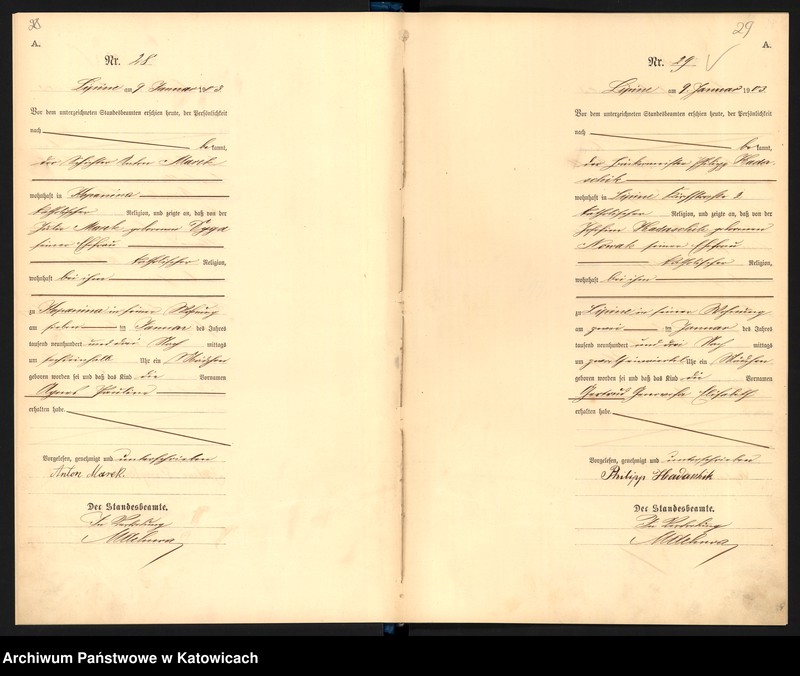 28
A.
Nr. 28.
Lipine am 9 Januar 1903.
Vor dem unterzeichneten Standesbeamten erschien heute, der Persönlichkeit
nach
be kannt,
der Anton Marek
wohnhaft in Chropaczow
katholischer Religion, und zeigte an, daß von der
Marek geborenen
seiner Ehefrau
katholischer Religion,
wohnhaft bei ihm
zu in seiner Wohnung
am sieben ten Januar des Jahres
tausend neunhundert und drei Nach mittags
um Uhr ein Mädchen
geboren worden sei und daß das Kind die Vornamen
Agnes Pauline
erhalten habe.
Vorgelesen, genehmigt und unterschrieben
Anton Marek.
Der Standesbeamte.
In Vertretung
29
A.
Nr. 29.
Lipine am 9. Januar 1903.
Vor dem unterzeichneten Standesbeamten erschien heute, der Persönlichkeit
nach
be kannt,
der Philipp Hada-
schik
wohnhaft in Lipine
katholischer Religion, und zeigte an, daß von der
Hadaschik geborenen
Nowak seiner Ehefrau
katholischer Religion,
wohnhaft bei ihm
zu Lipine in seiner Wohnung
am zwei ten Januar des Jahres
tausend neunhundert und drei Nach mittags
um Uhr ein Mädchen
geboren worden sei und daß das Kind die Vornamen
Gertrud Genovefa Elisabeth
erhalten habe.
Vorgelesen, genehmigt und unterschrieben
Philipp Hadaschik
Der Standesbeamte.
In Vertretung
Archiwum Państwowe w Katowicach